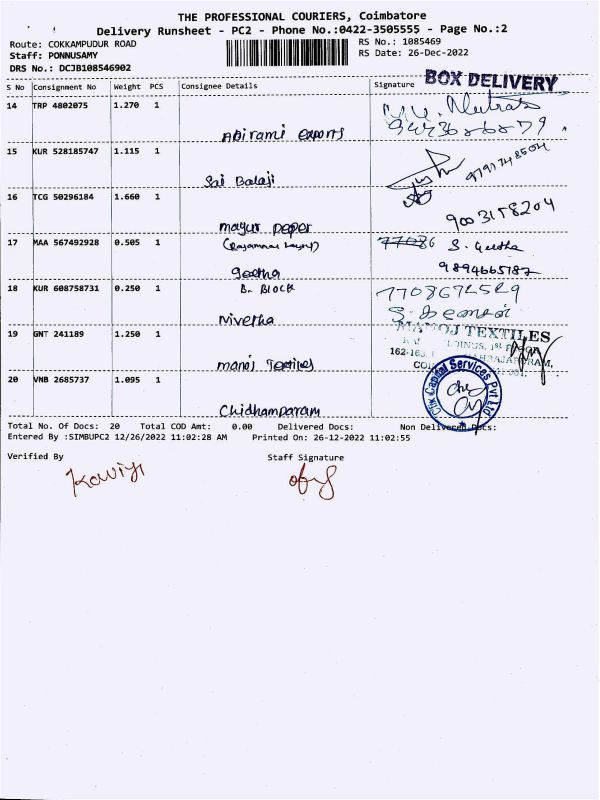 THE PROFESSIONAL COURIERS, Coimbatore
Delivery Runsheet - PC2 - Phone No.:0422-3505555 - Page No.:2
Route: COKKAMPUDUR ROAD
RS No.: 1085469
Staff: PONNUSAMY
RS Date: 26-Dec-2022
DRS No.: DCJB108546902
BOX DELIVERY
S No Consignment No Weight PCS Consignee Details Signature
14 TRP 4802075 1.270 1
Abirami exports
15 KUR 528185747 1.115 1
9797748504
Sai Balaji
16 TCG 50296184 1.660 1
9003158204
mayur paper
17 MAA 567492928 0.505 1 77086 S. Geetha
geetha 9894665187
18 KUR 608758731 0.250 1 B. Block
Nivetha
19 GNT 241189 1.250 1 MANOJ TEXTILES
manoj Textiles
20 VNB 2685737 1.095 1 Capital Services Pvt Ltd
Chidhamparam
Total No. Of Docs: 20 Total COD Amt: 0.00 Delivered Docs: Non Delivered Docs:
Entered By :SIMBUPC2 12/26/2022 11:02:28 AM Printed On: 26-12-2022 11:02:55
Verified By Staff Signature